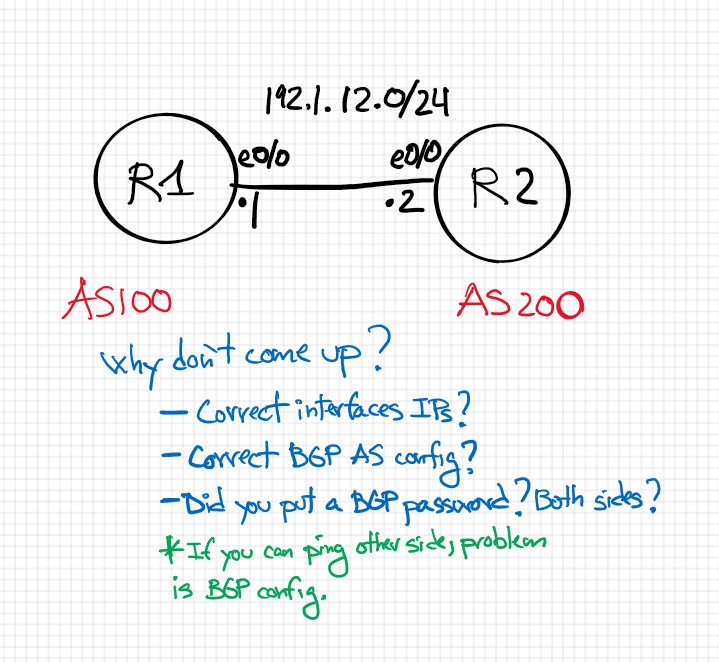 192.1.12.0/24
e0/0 e0/0
R1 R2
.1 .2
AS100 AS200
Why don't come up?
- Correct interfaces IPs?
- Correct BGP AS config?
- Did you put a BGP password? Both sides?
* If you can ping other side, problem
is BGP config.